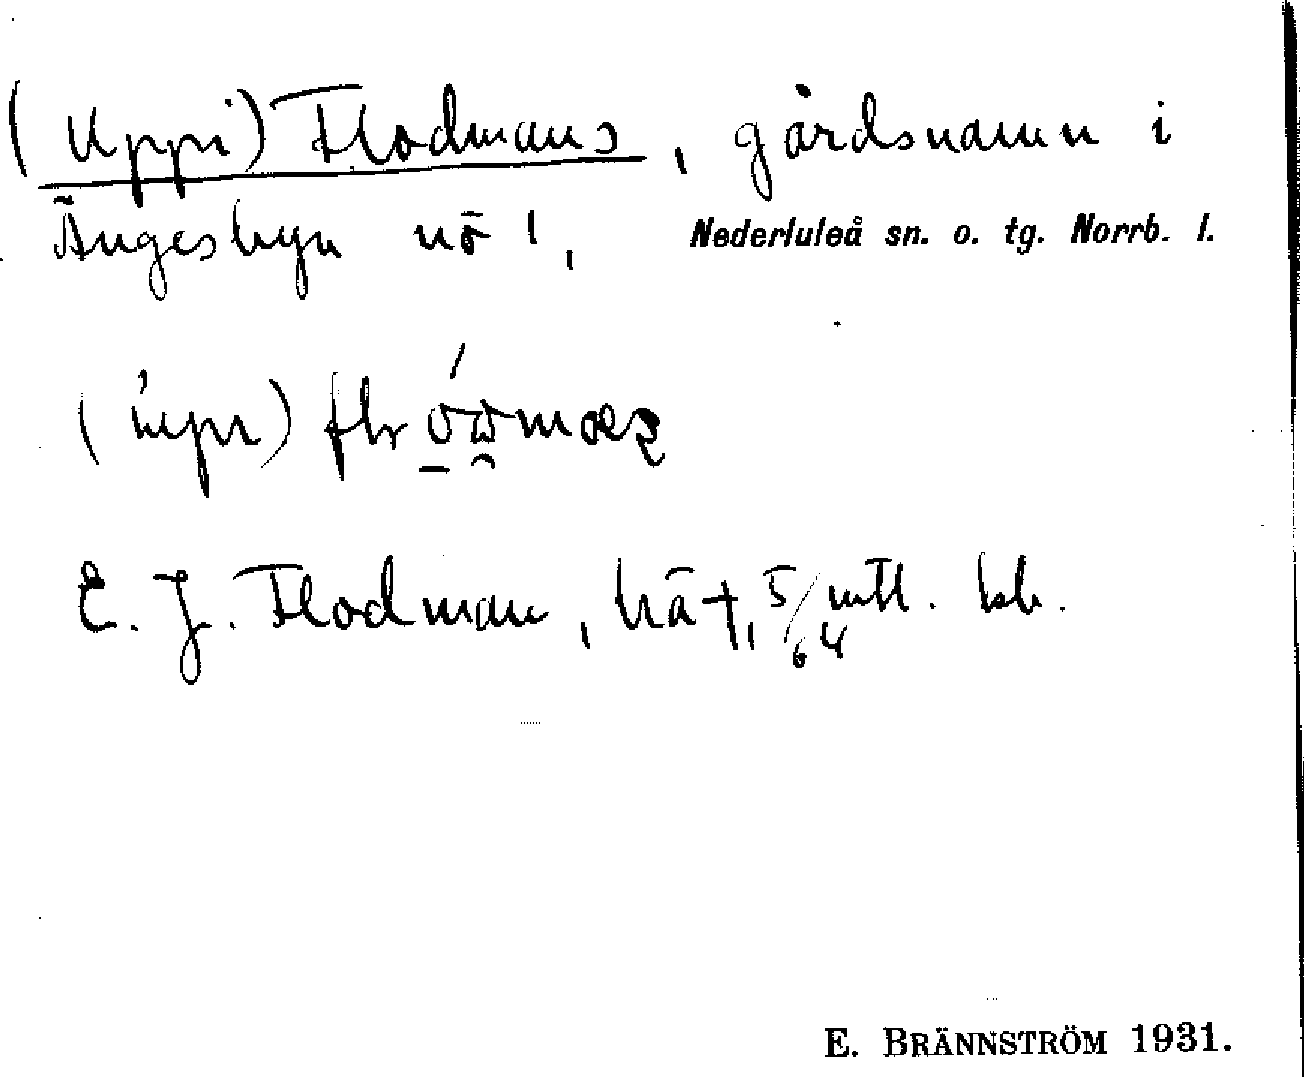 (Uppi) Flodmans, gårdsnamn i
Ängesbyn nö 1, Nederluleå sn. o. tg. Norrb. l.
E. J. Flodman, hä †, 5/64 mtl. kb.
E. BRÄNNSTRÖM 1931.